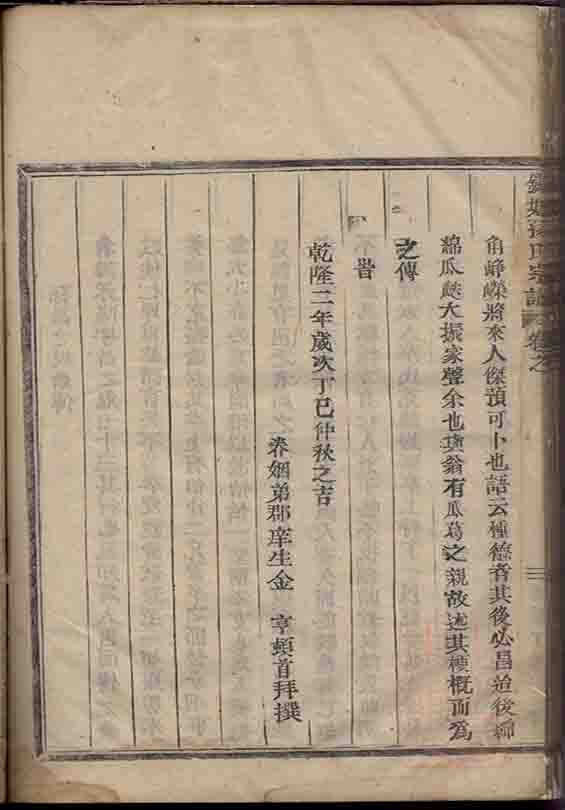 角崢嶸將來人傑預可卜也語云種德者其後必昌迨後
綿瓜瓞大振家聲余也與翁有瓜葛之親故述其梗概而爲
之傳
旹
乾隆二年歲次丁巳仲秋之吉
眷姻弟郡庠生金 亨頓首拜撰
氏宗譜 卷之